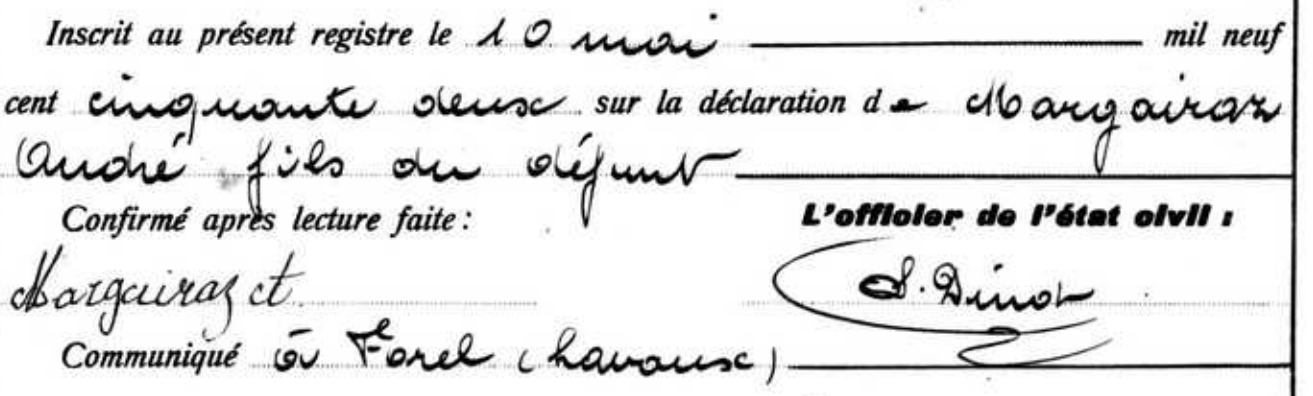 Inscrit au présent registre le 10 mai mil neuf
cent cinquante deux sur la déclaration de Margairaz
André fils du défunt
Confirmé après lecture faite : L'officier de l'état civil :
Margairaz A. Dinot
Communiqué à Forel (Lavaux)